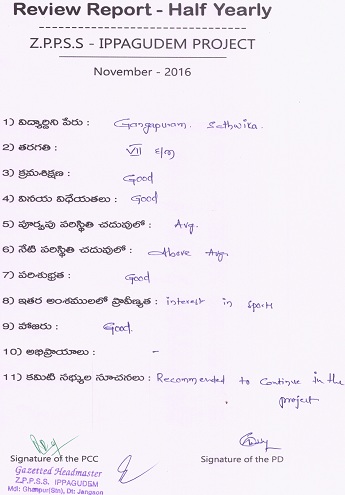 Review Report - Half Yearly
Z.P.P.S.S - IPPAGUDEM PROJECT
November - 2016
1) విద్యార్థిని పేరు : Gangapuram. Sathwika.
2) తరగతి : VII E/M
3) క్రమశిక్షణ : Good
4) వినయ విధేయతలు : Good
5) పూర్వపు పరిస్థితి చదువులో : Avg.
6) నేటి పరిస్థితి చదువులో : Above Avg.
7) పరిశుభ్రత : Good
8) ఇతర అంశములలో ప్రావీణ్యత : interest in sports
9) హాజరు : Good.
10) అభిప్రాయాలు : -
11) కమిటి సభ్యుల సూచనలు : Recommended to Continue in the
project
Signature of the PCC Signature of the PD
Gazetted Headmaster
Z.P.P.S.S. IPPAGUDEM
Mdl: Ghanpur(Stn), Dt: Jangaon